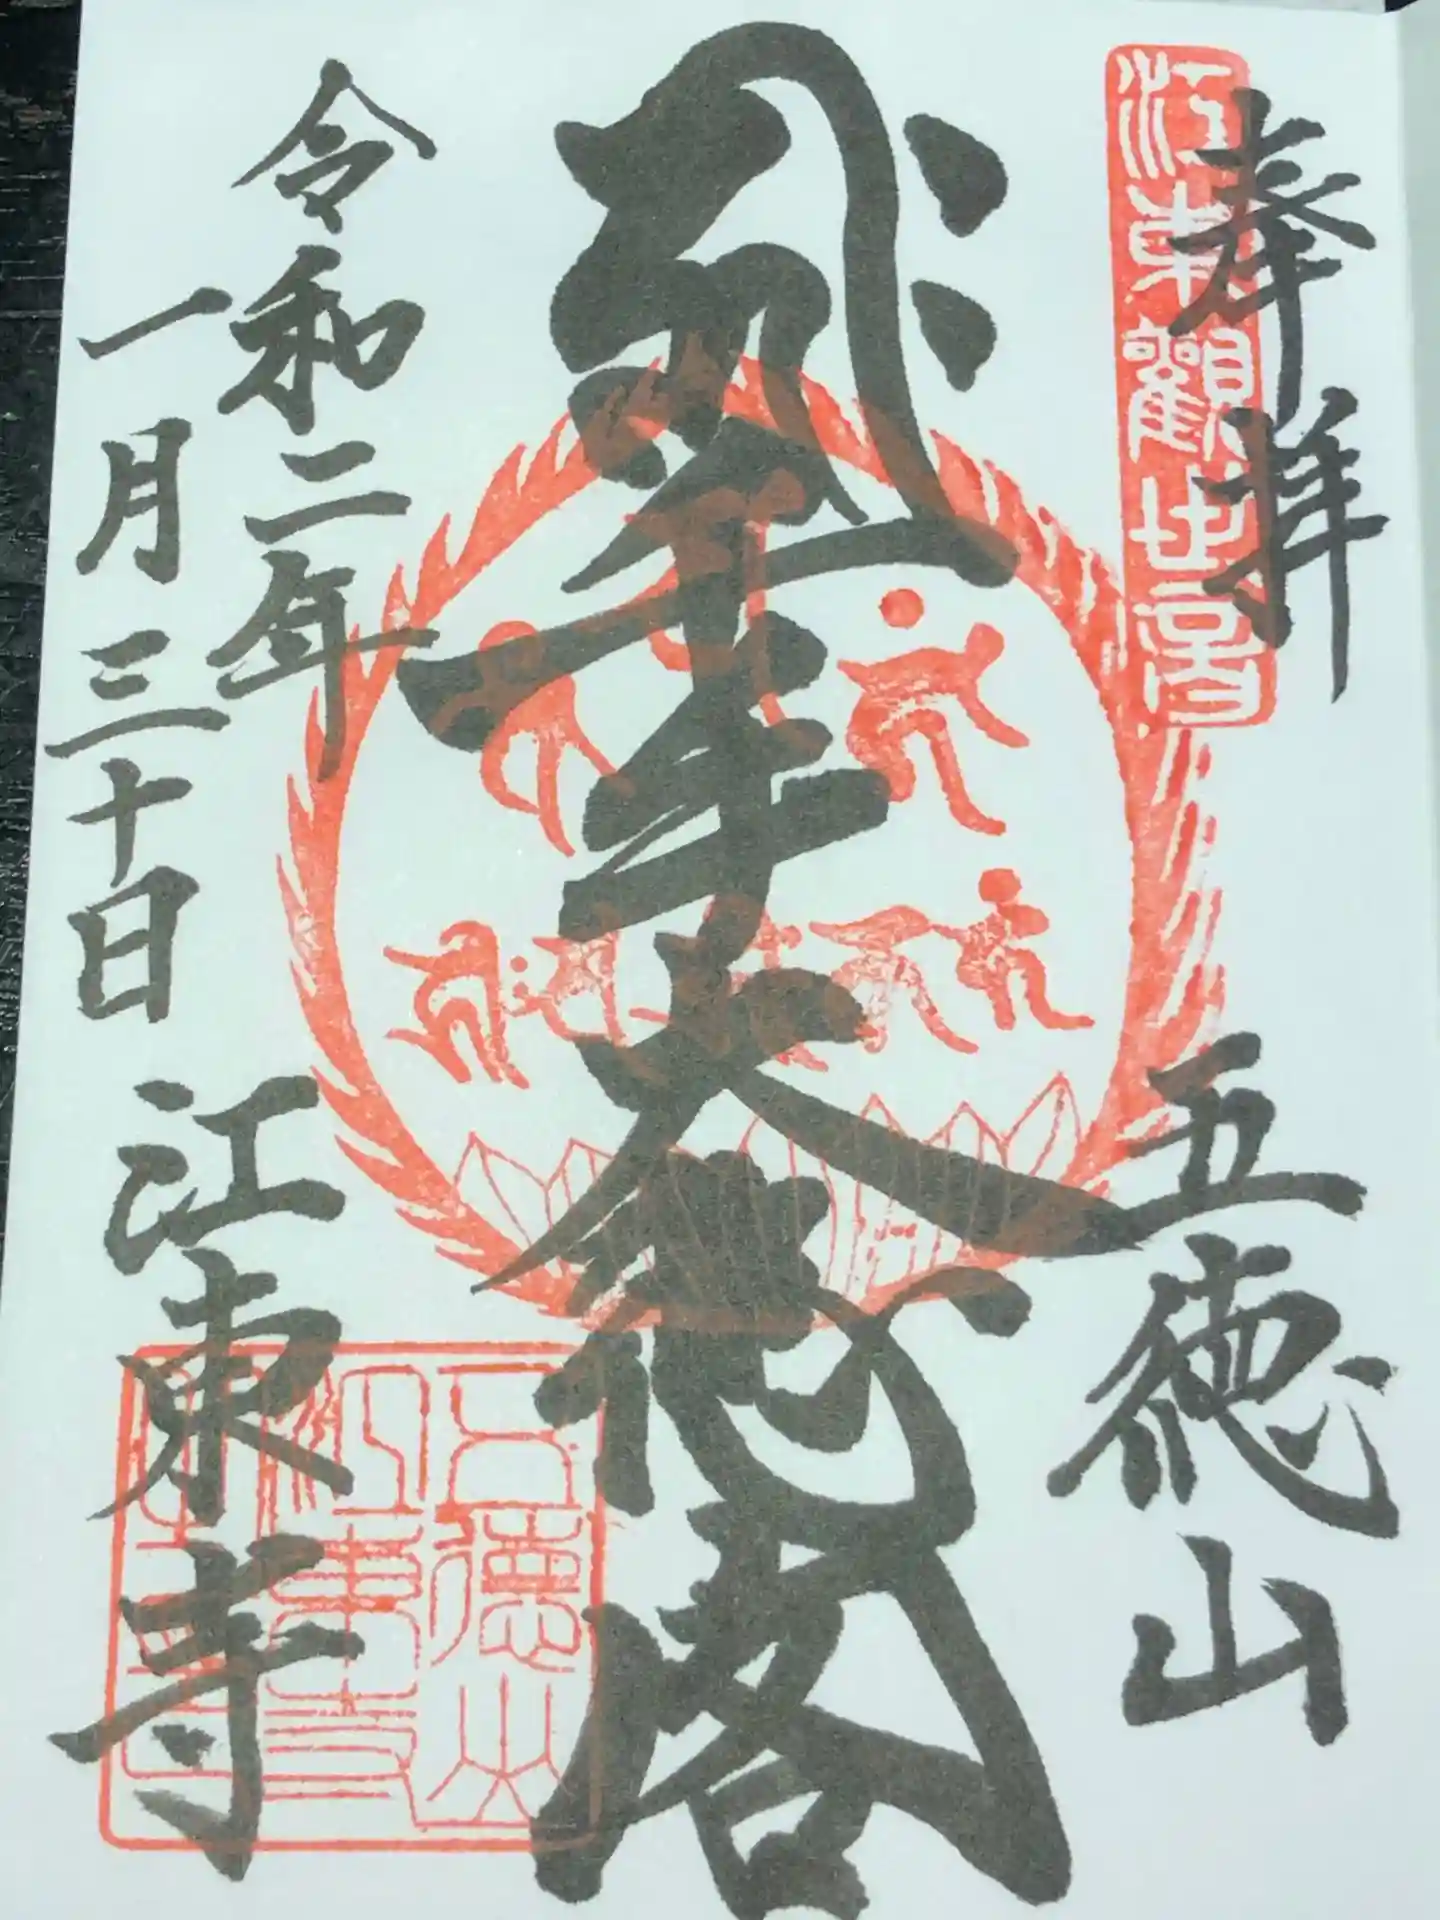 奉拝
江東觀世音
五徳山
千手大悲閣
令和二年
一月三十日
江東寺
五德山
江東寺